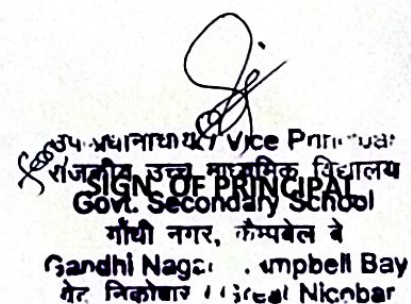 उप प्रधानाचार्य / Vice Principal
राजकीय उच्च माध्यमिक विद्यालय
SIGN. OF PRINCIPAL
Govt. Secondary School
गाँधी नगर, कैम्पबेल बे
Gandhi Nagar, Campbell Bay
ग्रेट निकोबार / Great Nicobar